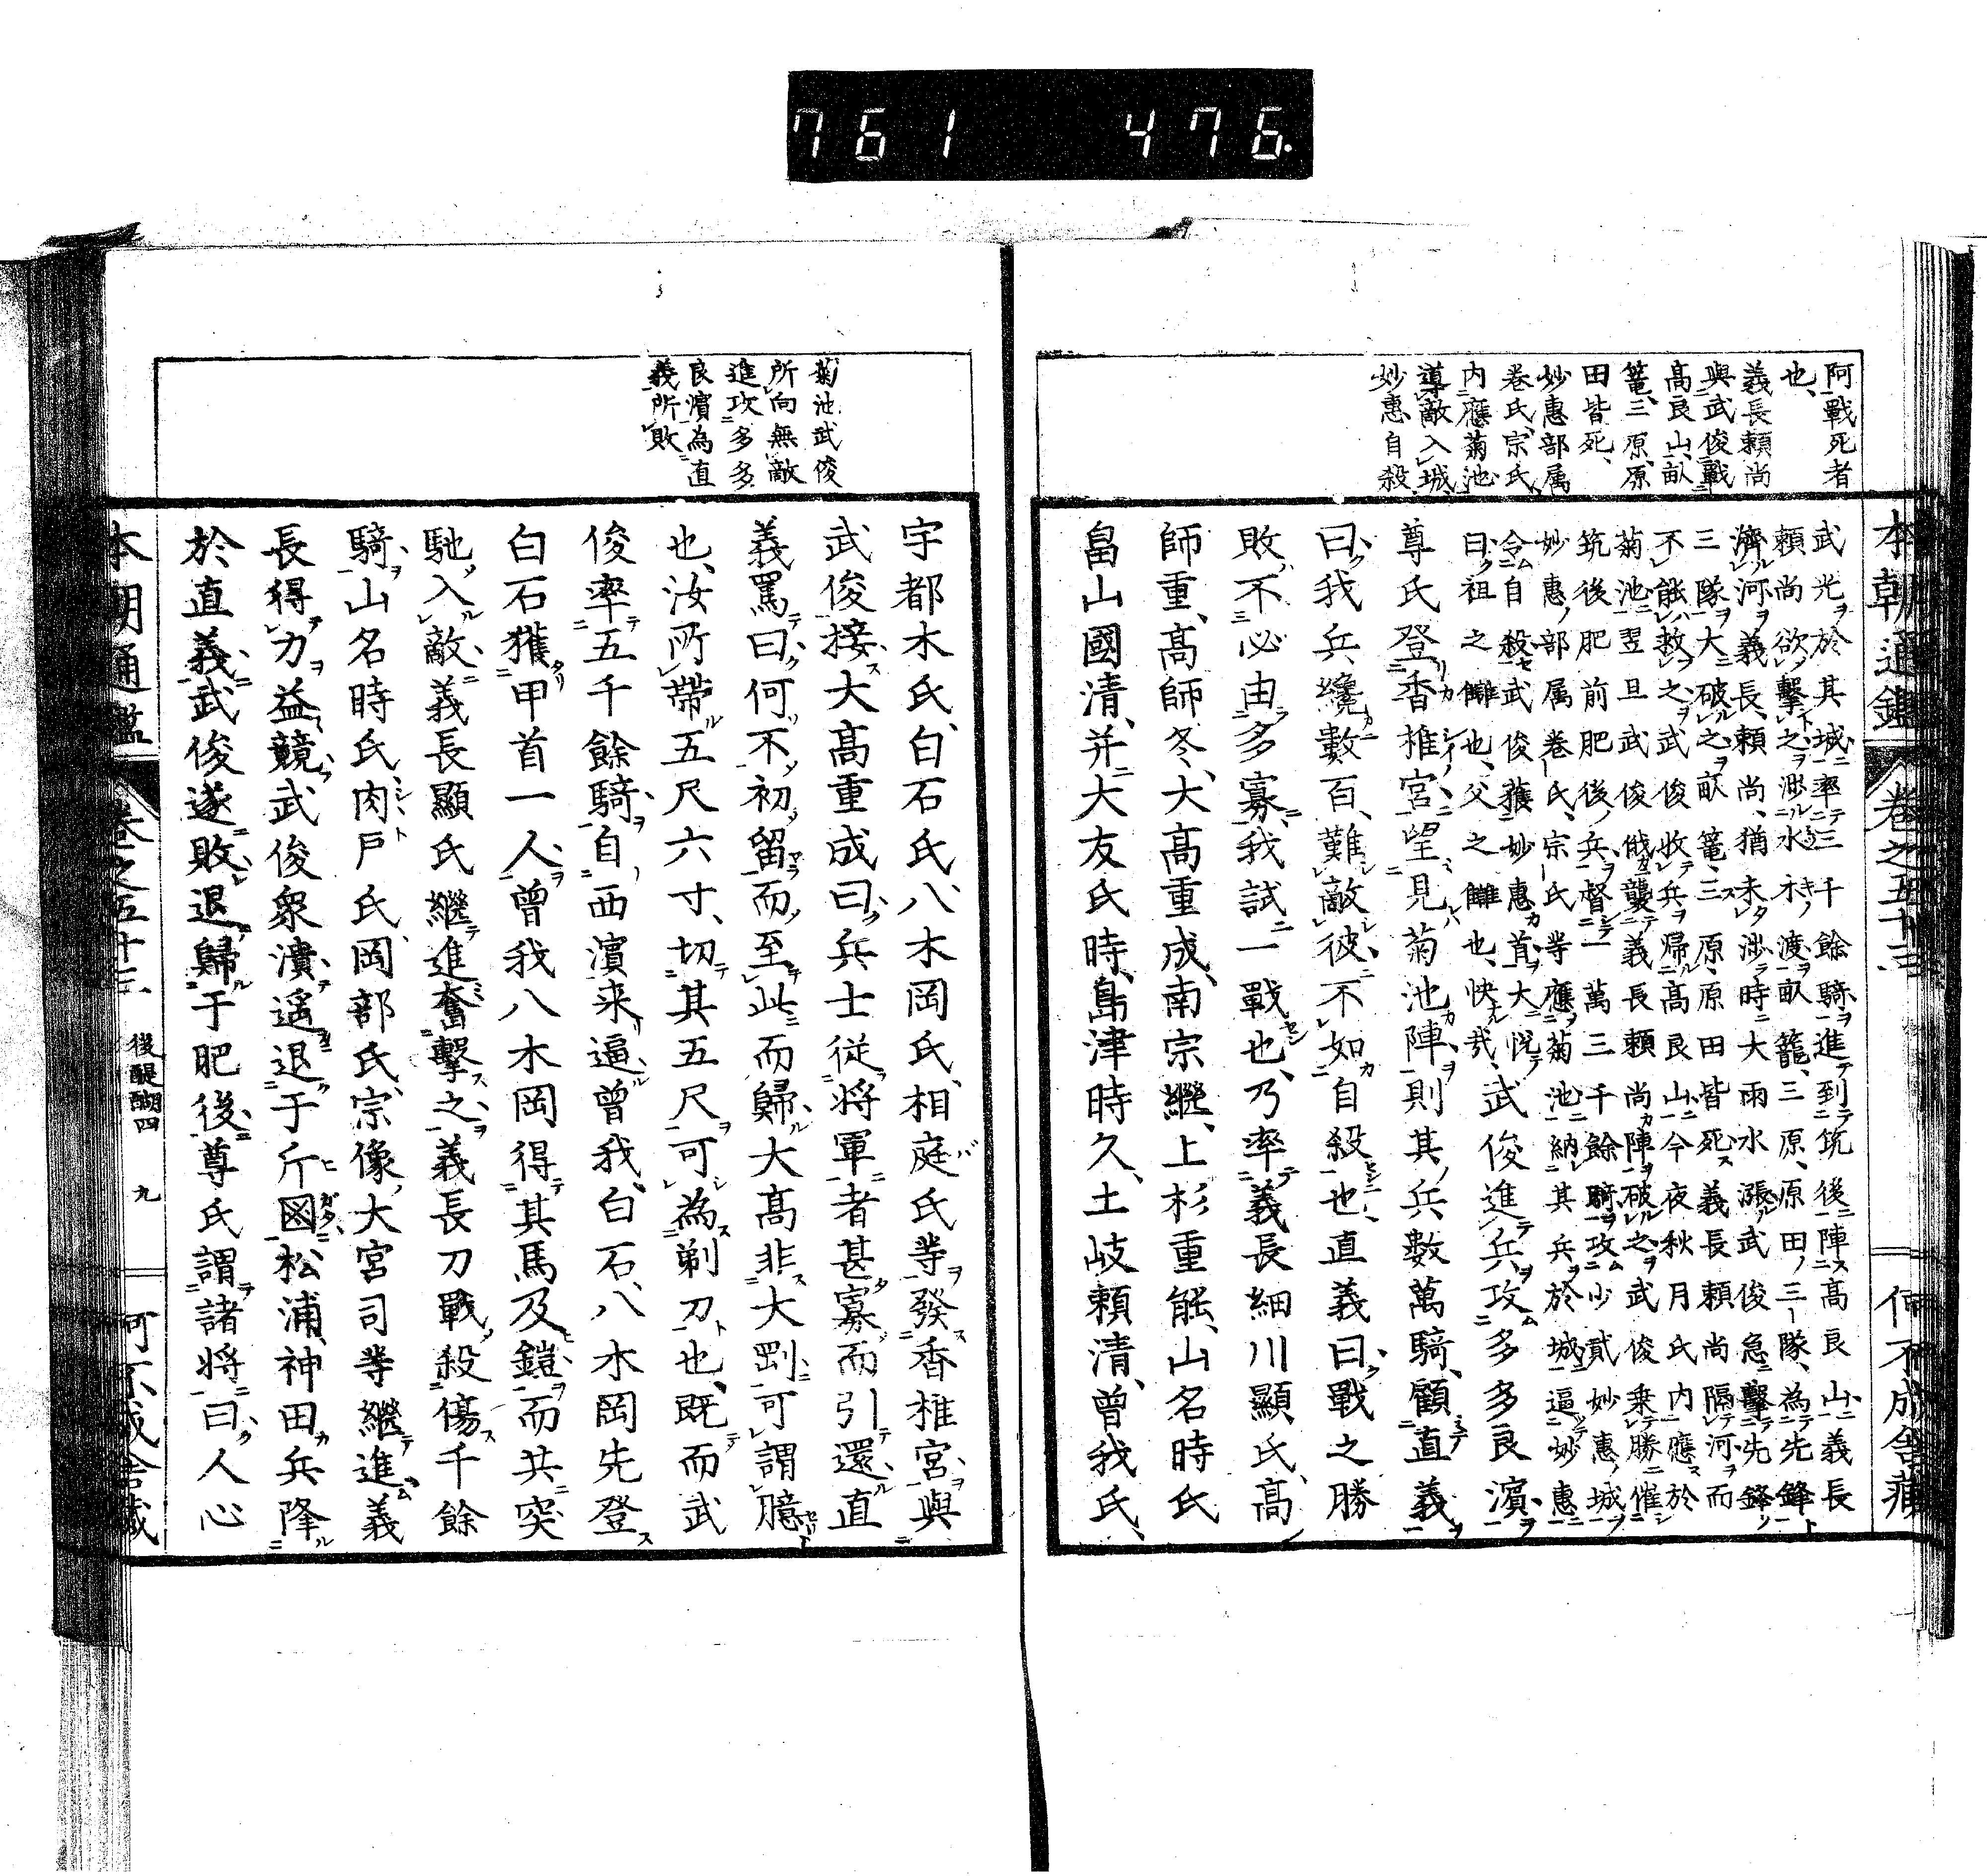 761 476.
本朝通鑑 卷之五十三 何不成舎蔵
阿戰死者
也、
義長頼尚
與武俊戰
高良山、畒
篭、三原、原
田皆死、
妙惠部属
卷氏、宗氏、
内應菊池
導敵入城、
妙惠自殺、
武光於其城率三千餘騎進到筑後陣高良山義長
頼尚欲撃之渉水木渡畒籠、三原、原田三隊、為先鋒
濟河義長、頼尚、猶未渉時大雨水漲武俊急撃先鋒
三隊大破之畒篭、三原、原田皆死義長頼尚隔河而
不能救之武俊收兵帰高良山今夜秋月氏内應於
菊池翌旦武俊俄襲義長頼尚陣破之武俊乗勝催
筑後肥前肥後兵督一萬三千餘騎攻少貳妙惠城
妙惠部属卷氏、宗氏等應菊池納其兵於城逼妙惠
令自殺武俊獲妙惠首大悦
曰祖之讎也、父之讎也、快哉、武俊進兵攻多多良濱
尊氏登香椎宮望見菊池陣則其兵數萬騎、顧直義
曰我兵纔數百、難敵彼、不如自殺也、直義曰戰之勝
敗不必由多寡我試一戰也、乃率義長細川顯氏、高
師重、高師冬、大高重成、南宗繼、上杉重能、山名時氏
畠山國清、并大友氏時、島津時久、土岐頼清、曾我氏、
宇都木氏、白石氏、八木岡氏、相庭氏等發香椎宮與
武俊接大高重成曰兵士従将軍者甚寡而引還直
義罵曰何不初留而至此而歸大高非大剛可謂臆
也、汝所帶五尺六寸、切其五尺可為剃刀也、既而武
俊率五千餘騎自西濱来逼曾我、白石、八木岡先登
白石獲甲首一人曾我八木岡得其馬及鎧而共突
馳入敵義長顯氏繼進奮撃之義長刀戰殺傷千餘
騎山名時氏肉戸氏、岡部氏、宗像大宮司等繼進義
長得力益競武俊衆潰遥退于斤図松浦、神田兵降
於直義武俊遂敗退歸于肥後尊氏謂諸将曰人心
菊池武俊
所向無敵
進攻多多
良濱為直
義所敗
本朝通鑑 卷之五十三 後醍醐四 九 何不成舎蔵